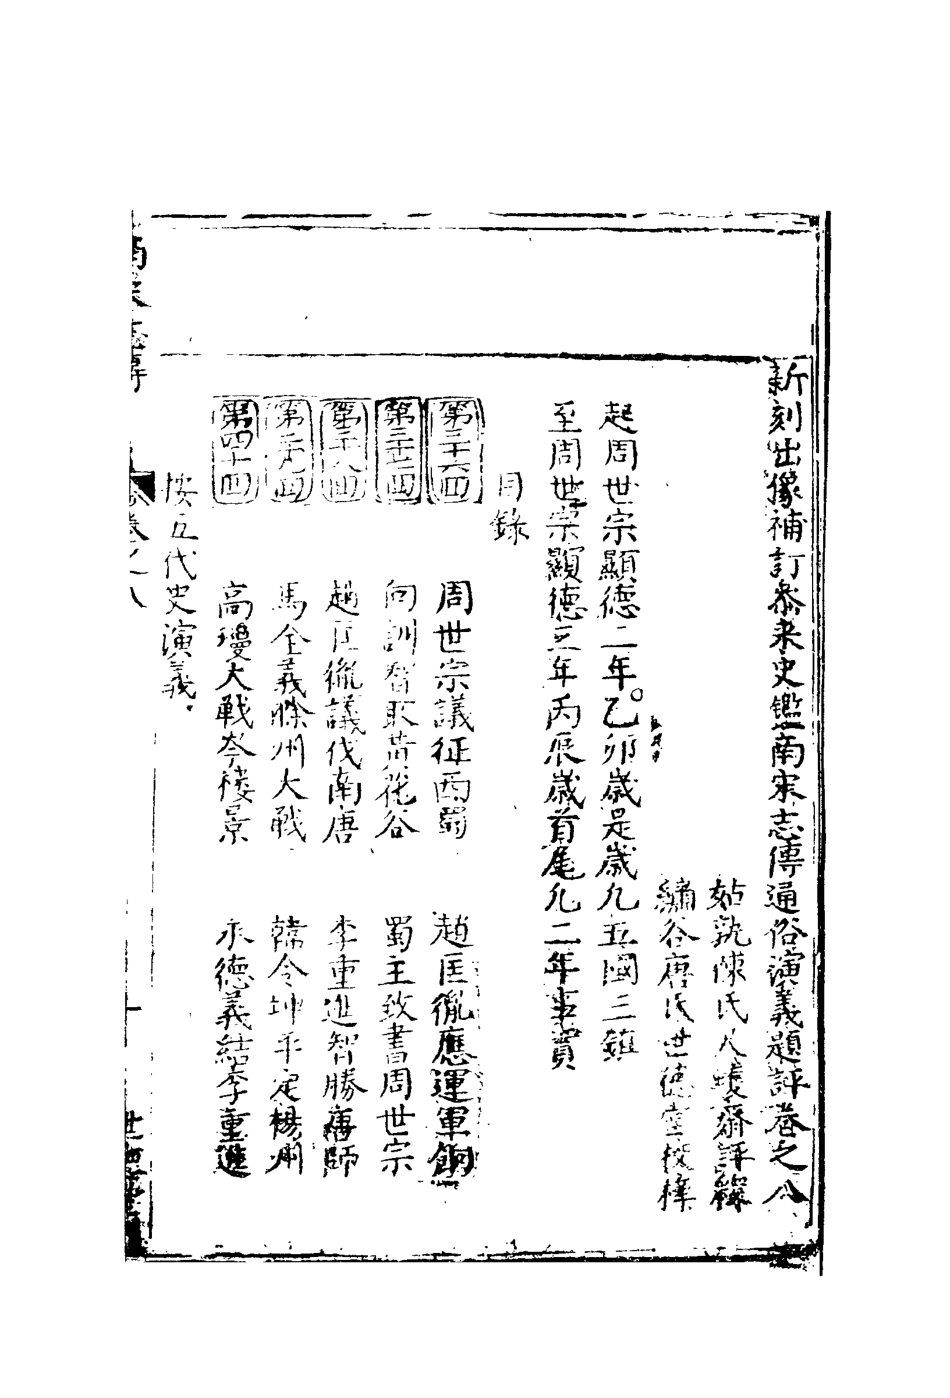 新刻出像補訂叅采史鑑南宋志傳通俗演義題評卷之八
姑孰陳氏尺蠖齋評釋
繡谷唐氏世德堂校梓
起周世宗顯德二年乙卯歲是歲凡五國三鎮
至周世宗顯德三年丙辰歲首尾凡二年事實
目錄
第三十六回 周世宗議征西蜀 趙匡胤應運軍餉
第三十七回 向訓智取黃花谷 蜀主致書周世宗
第三十八回 趙匡胤議伐南唐 李重進智勝唐師
第三十九回 馬全義滁州大戰 韓令坤平定楊州
第四十回 高瓊大戰岑樓景 永德義結李重進
按五代史演義
南宋志傳 卷之八 一 世德堂